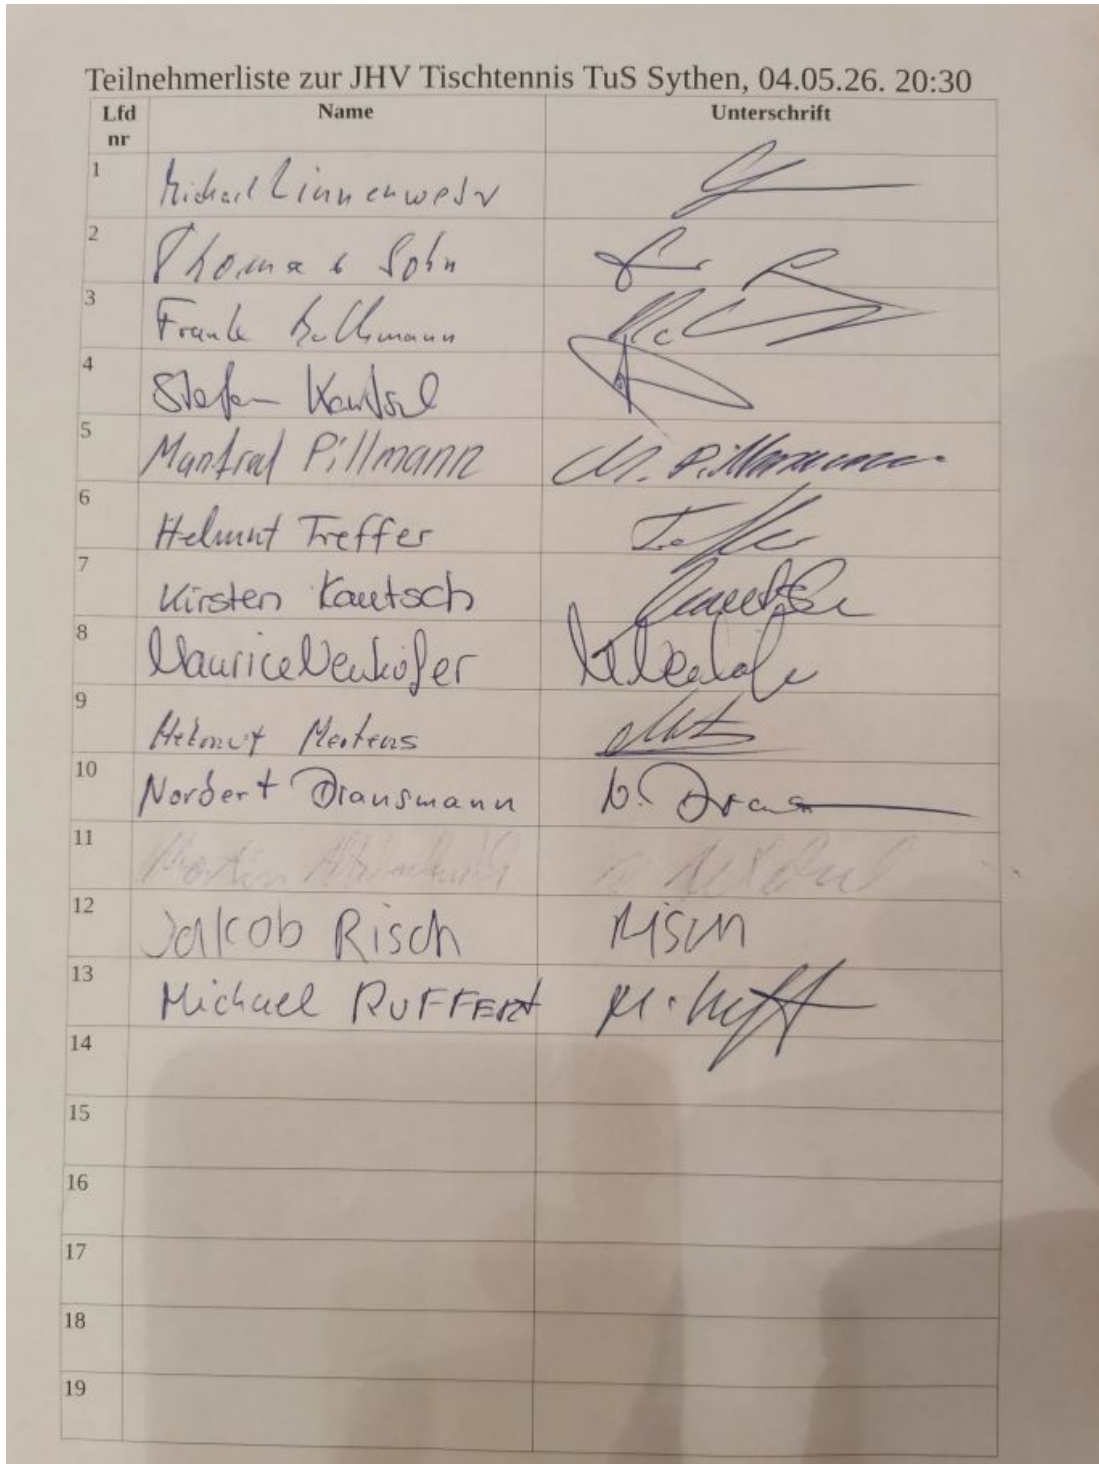 Teilnehmerliste zur JHV Tischtennis TuS Sythen, 04.05.26. 20:30
Lfd nr Name Unterschrift
1 Michael Linnenweber
2 Thomas Sohn
3 Frank
4 Stefan Kautsch
5 Manfred Pillmann M. Pillmann
6 Helmut Treffer Treffer
7 Kirsten Kautsch Kautsch
8 Maurice Venhofer
9 Helmut Mertens
10 Norbert Dransmann N. Drans
11 Martin
12 Jakob Risch Risch
13 Michael RUFFERT
14
15
16
17
18
19